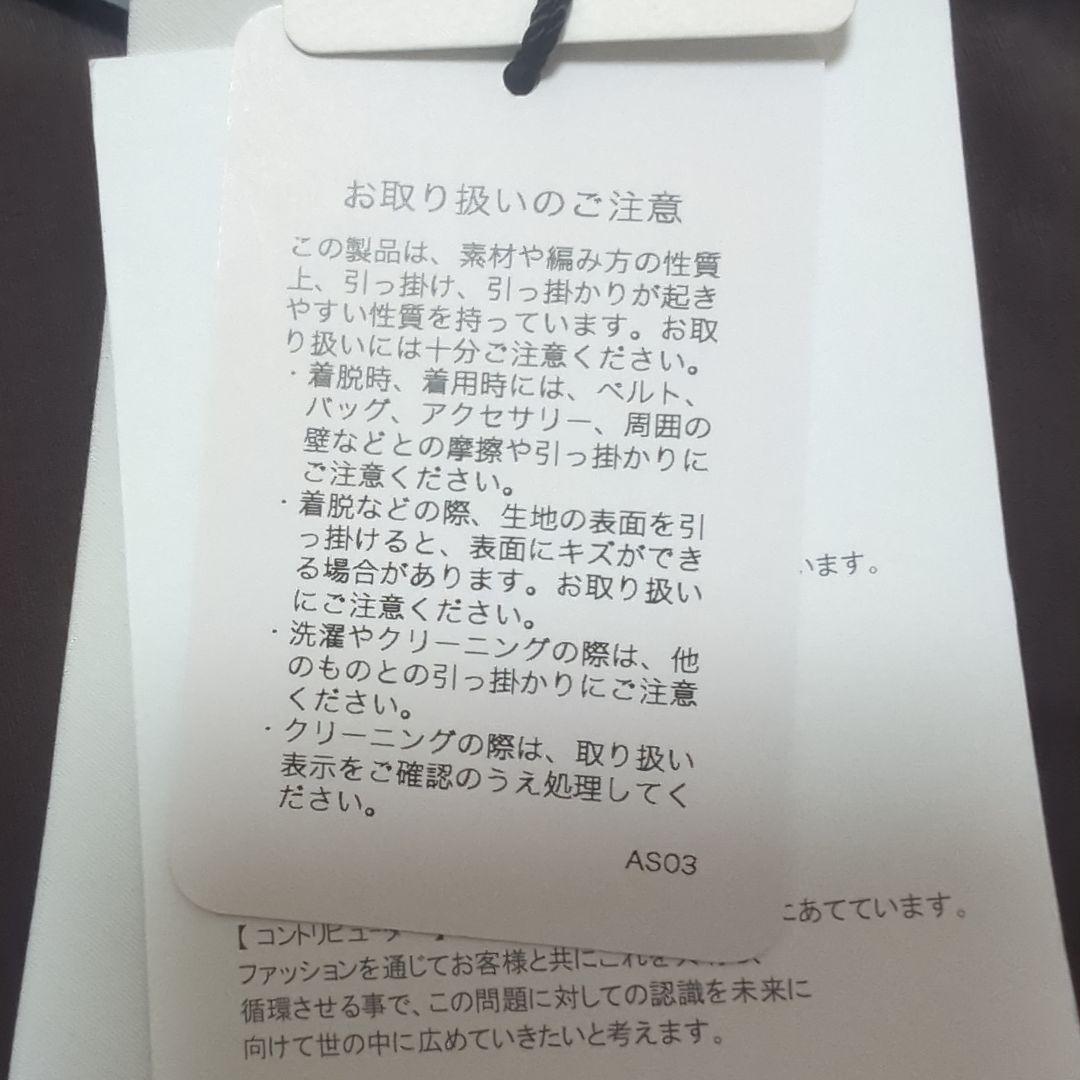 お取り扱いのご注意
この製品は、素材や編み方の性質
上、引っ掛け、引っ掛かりが起き
やすい性質を持っています。お取
り扱いには十分ご注意ください。
・着脱時、着用時には、ベルト、
バッグ、アクセサリー、周囲の
壁などとの摩擦や引っ掛かりに
ご注意ください。
・着脱などの際、生地の表面を引
っ掛けると、表面にキズができ
る場合があります。お取り扱い
にご注意ください。
・洗濯やクリーニングの際は、他
のものとの引っ掛かりにご注意
ください。
・クリーニングの際は、取り扱い
表示をご確認のうえ処理してく
ださい。
AS03
います。
にあてています。
【コントリビューター】
ファッションを通じてお客様と共にこれを
循環させる事で、この問題に対しての認識を未来に
向けて世の中に広めていきたいと考えます。